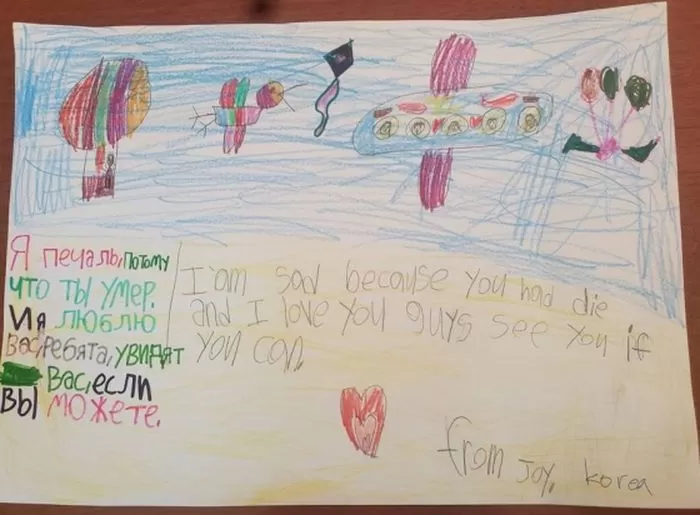 Я печаль, Потому
что ты умер.
И я люблю
Вас, ребята, увидят
Вас, если
Вы можете.
I am sad because you had die
and I love you guys see you if
you can.
from Joy, korea